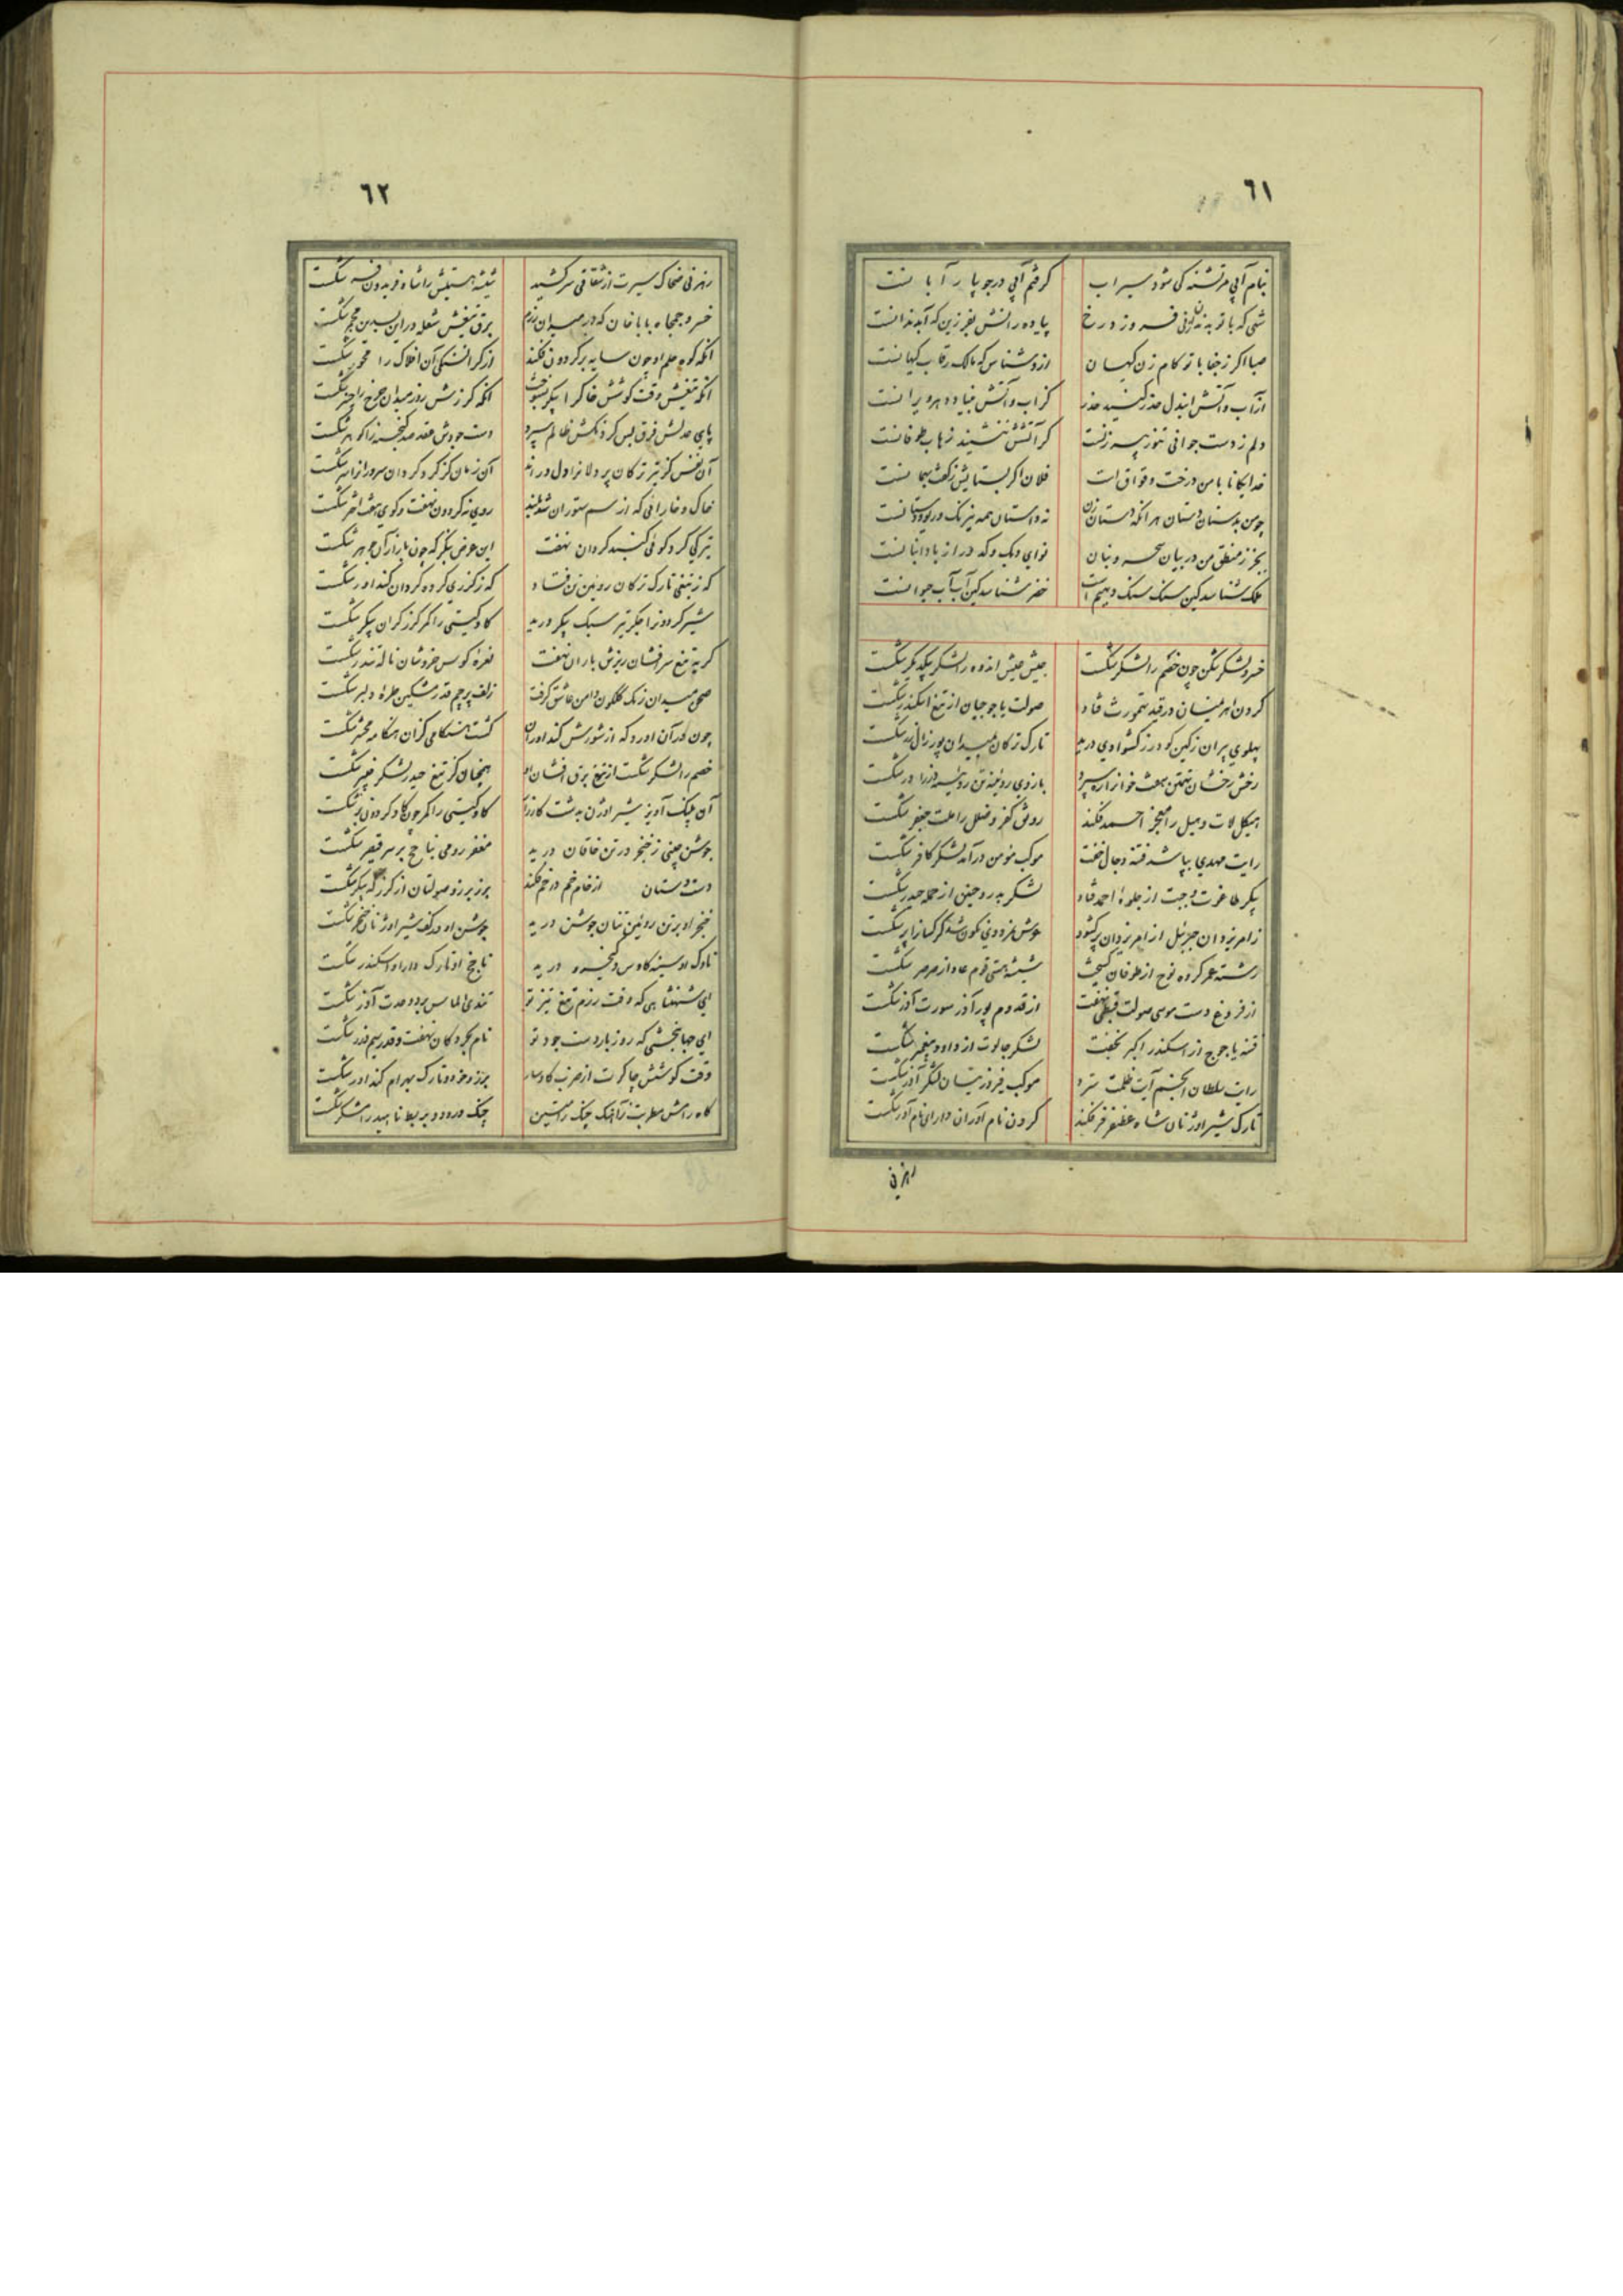 ٦١
بنام آبی مر تشنه کی شود سیراب گرفتم آبی در جو پار آبا نست
شهی که با تو به فروز د رخ پیاده رانش بفرزین که آبدندانست
صبا اگر ز جفا با تو کام زن کیهان از و شناس که مالک رقاب کیهانست
از آب و آتش ایدل حذر کنید حذر کز آب و آتش بنیاد دهر ویرانست
دلم ز دست جوانی تنور پیر زنست گر آتشش ننشیند ز هاب طوفانست
خدایگانا با من درخت و قواق است فلان اگر بستایش زکف بیجانست
چو من بدستان دستان هر آنکه دستان زن نه داستان همه نیرنگ
بجز ز منطق من در بیان سحر و بنان نوای دیک و که دراز
ملک شناسد کین سنگ سنگ دیهیم است خضر شناسد کین آب آب حیوانست
خسرو لشکر شکن چون خصم را لشکر شکست جیش جیش اندوه را لشکر یکدیگر شکست
گردن اهرمنیان در قید تهمورث فتاد صولت یاجوجیان از تیغ اسکندر شکست
پهلوی پیران ز کین گودرز کشوادی درید تارک ترکان بمیدان پور زال زر شکست
رخش رخشان تهمتن هفت خوانرا ره سپرد بازوی روئینه تن روئینه دژ را در شکست
هیکل لات و هبل را معجز احمد فکند رونق کفر و ضلل را ملت جعفر شکست
رایت مهدی بپا شد فتنه دجال خفت موکب مؤمن در آمد لشکر کافر شکست
پیکر طاغوت و جبت از جلوه احمد فتاد لشکر بدر و حنین از حمله حیدر شکست
ز امر یزدان جبرئیل از امر یزدان پر گشود عرش نمرودی نگون شد
رشته عمر گروه نوح از طوفان گسیخت شیشه هستی قوم عاد از صرصر شکست
از فروغ دست موسی صولت قبطی نهفت از قدوم پور آذر سورت آذر شکست
فتنه یاجوج از اسکندر اکبر بخفت لشکر جالوت از داود پیغمبر شکست
رایت سلطان انجم آیت ظلمت سترد موکب فیروز نیسان لشکر آذر شکست
تارک شیر اوژنان شاه غضنفر فر فکند گردن نام آوران دارای نام آور شکست
رهزنی
٦٢
رهزنی ضحاک سیرت از شقاقی سر کشید شیشه هستیش را شاه فریدون فر شکست
خسرو جمجاه بابا خان که در میدان رزم برق تیغش شعله در این سیمین مجمر شکست
آنکه کوه حلم او چون سایه بر گردون فکند از گران سنگی آن افلاک را محور شکست
آنکه تیغش وقت کوشش خاک را پیکر بسوخت آنکه گرزش روز میدان چرخ را چنبر شکست
پای عدلش فرق بس گردنکش ظالم سپرد دست جودش عقد صد گنجینه را گوهر شکست
آن نفس کز تیر ترکان پر دلانرا دل درید آن زمان کز گرز گردان سرورانرا سر شکست
خاک و خارائی که از سم ستوران شد بلند روی نه گردون نهفت و کوی هفت اختر شکست
تیرگی گرد گوئی گنبد گردان نهفت این عرض بنگر که چون بازار آن جوهر شکست
که ز تیغی تارک ترکان روئین تن فتاد که ز گرزی گرده گردان کنداور شکست
شیر گردونرا جگر تیر سبک پیکر درید گاو گیتی را کمر گرز گران پیکر شکست
گریه تیغ سر افشان ریزش باران نهفت نعره کوس خروشان ناله تندر شکست
صحن میدان رنگ گلگون دامن عاشق گرفت زلف پرچم قدر مشکین طره دلبر شکست
چون در آن آورد که از شورش کنداوران گشت هنگامی کزان هنگامه محشر شکست
خصم را لشکر شکست از تیغ برق افشان او همچنان کز تیغ حیدر لشکر خیبر شکست
آن پلنگ آویز شیر اوژن بدشت کارزار گاو گیتی را کمر چون گاو گردون بر شکست
جوشن چینی ز خنجر در تن خاقان درید مغفر رومی بناچخ بر سر قیصر شکست
دست دستان از خام خم در خم فکند برز برزو صولتان از گرز که پیکر شکست
خنجر او بر تن روئین تنان جوشن درید جوشن او در کف شیر اوژنان خنجر شکست
ناوک او سینه کاوس و کیخسرو درید ناچخ او تارک دارا و اسکندر شکست
ای شهنشاهی که وقت رزم تیغ تیز تو تندی الماس برد و حدت آذر شکست
ای جهانبخشی که روز بار دست جود تو نام بحر و کان نهفت و قدر سیم و زر شکست
وقت کوشش چاکرت از ضرب گاوسار برز و خود و تارک بهرام کنداور شکست
گاه رامش مطربت ز آهنگ چنگ راستین چنگ و رود و بربط ناهید رامشگر شکست